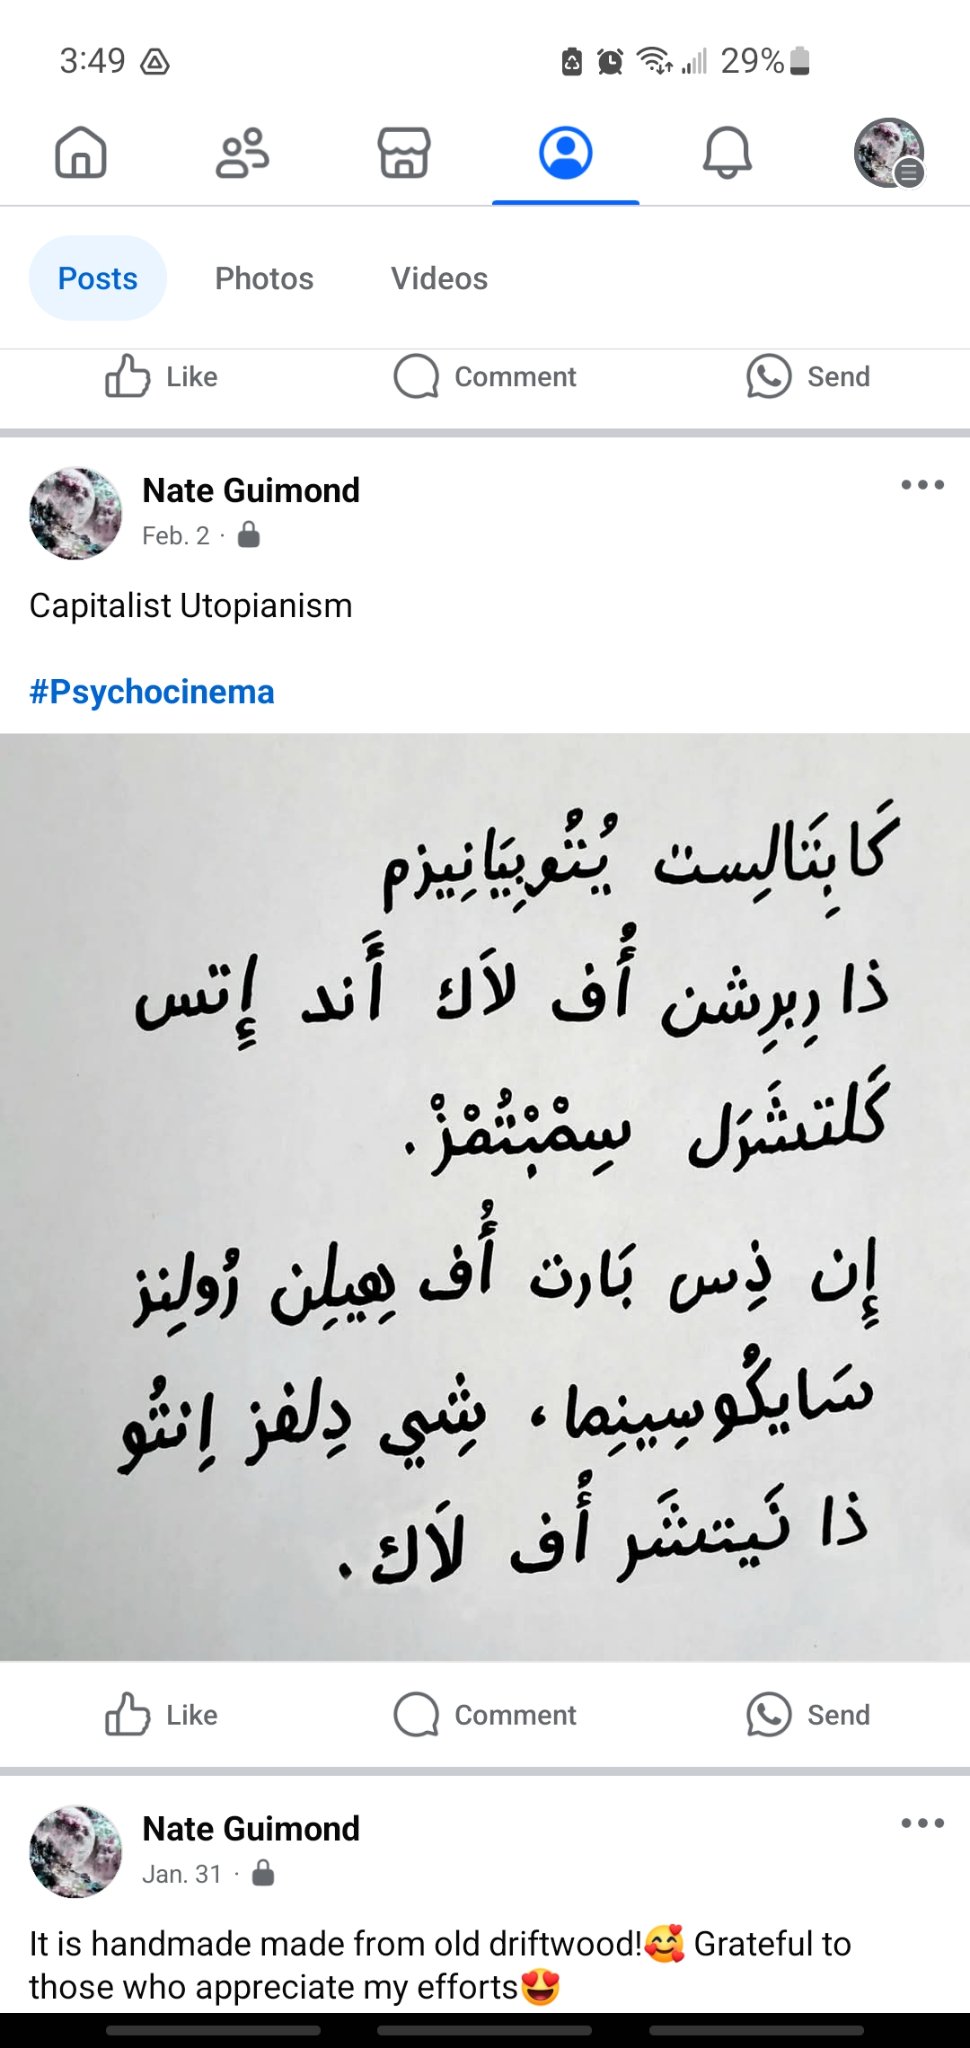 3:49 29%
Posts Photos Videos
Like Comment Send
Nate Guimond
Feb. 2 ·
Capitalist Utopianism
#Psychocinema
كَابِتَالِست يُتُوبِيَانِيزم
ذا رِبرِشن أُف لاَك أَند إِتس
كَلتشَرَل سِمْبْتُمْزْ.
إِن ذِس بَارت أُف هِيلِن رُولِنز
سَايكُوسِينِما، شِي دِلفز اِنتُو
ذا نَيتشَر أُف لاَك.
Like Comment Send
Nate Guimond
Jan. 31 ·
It is handmade made from old driftwood!🥰 Grateful to
those who appreciate my efforts😍